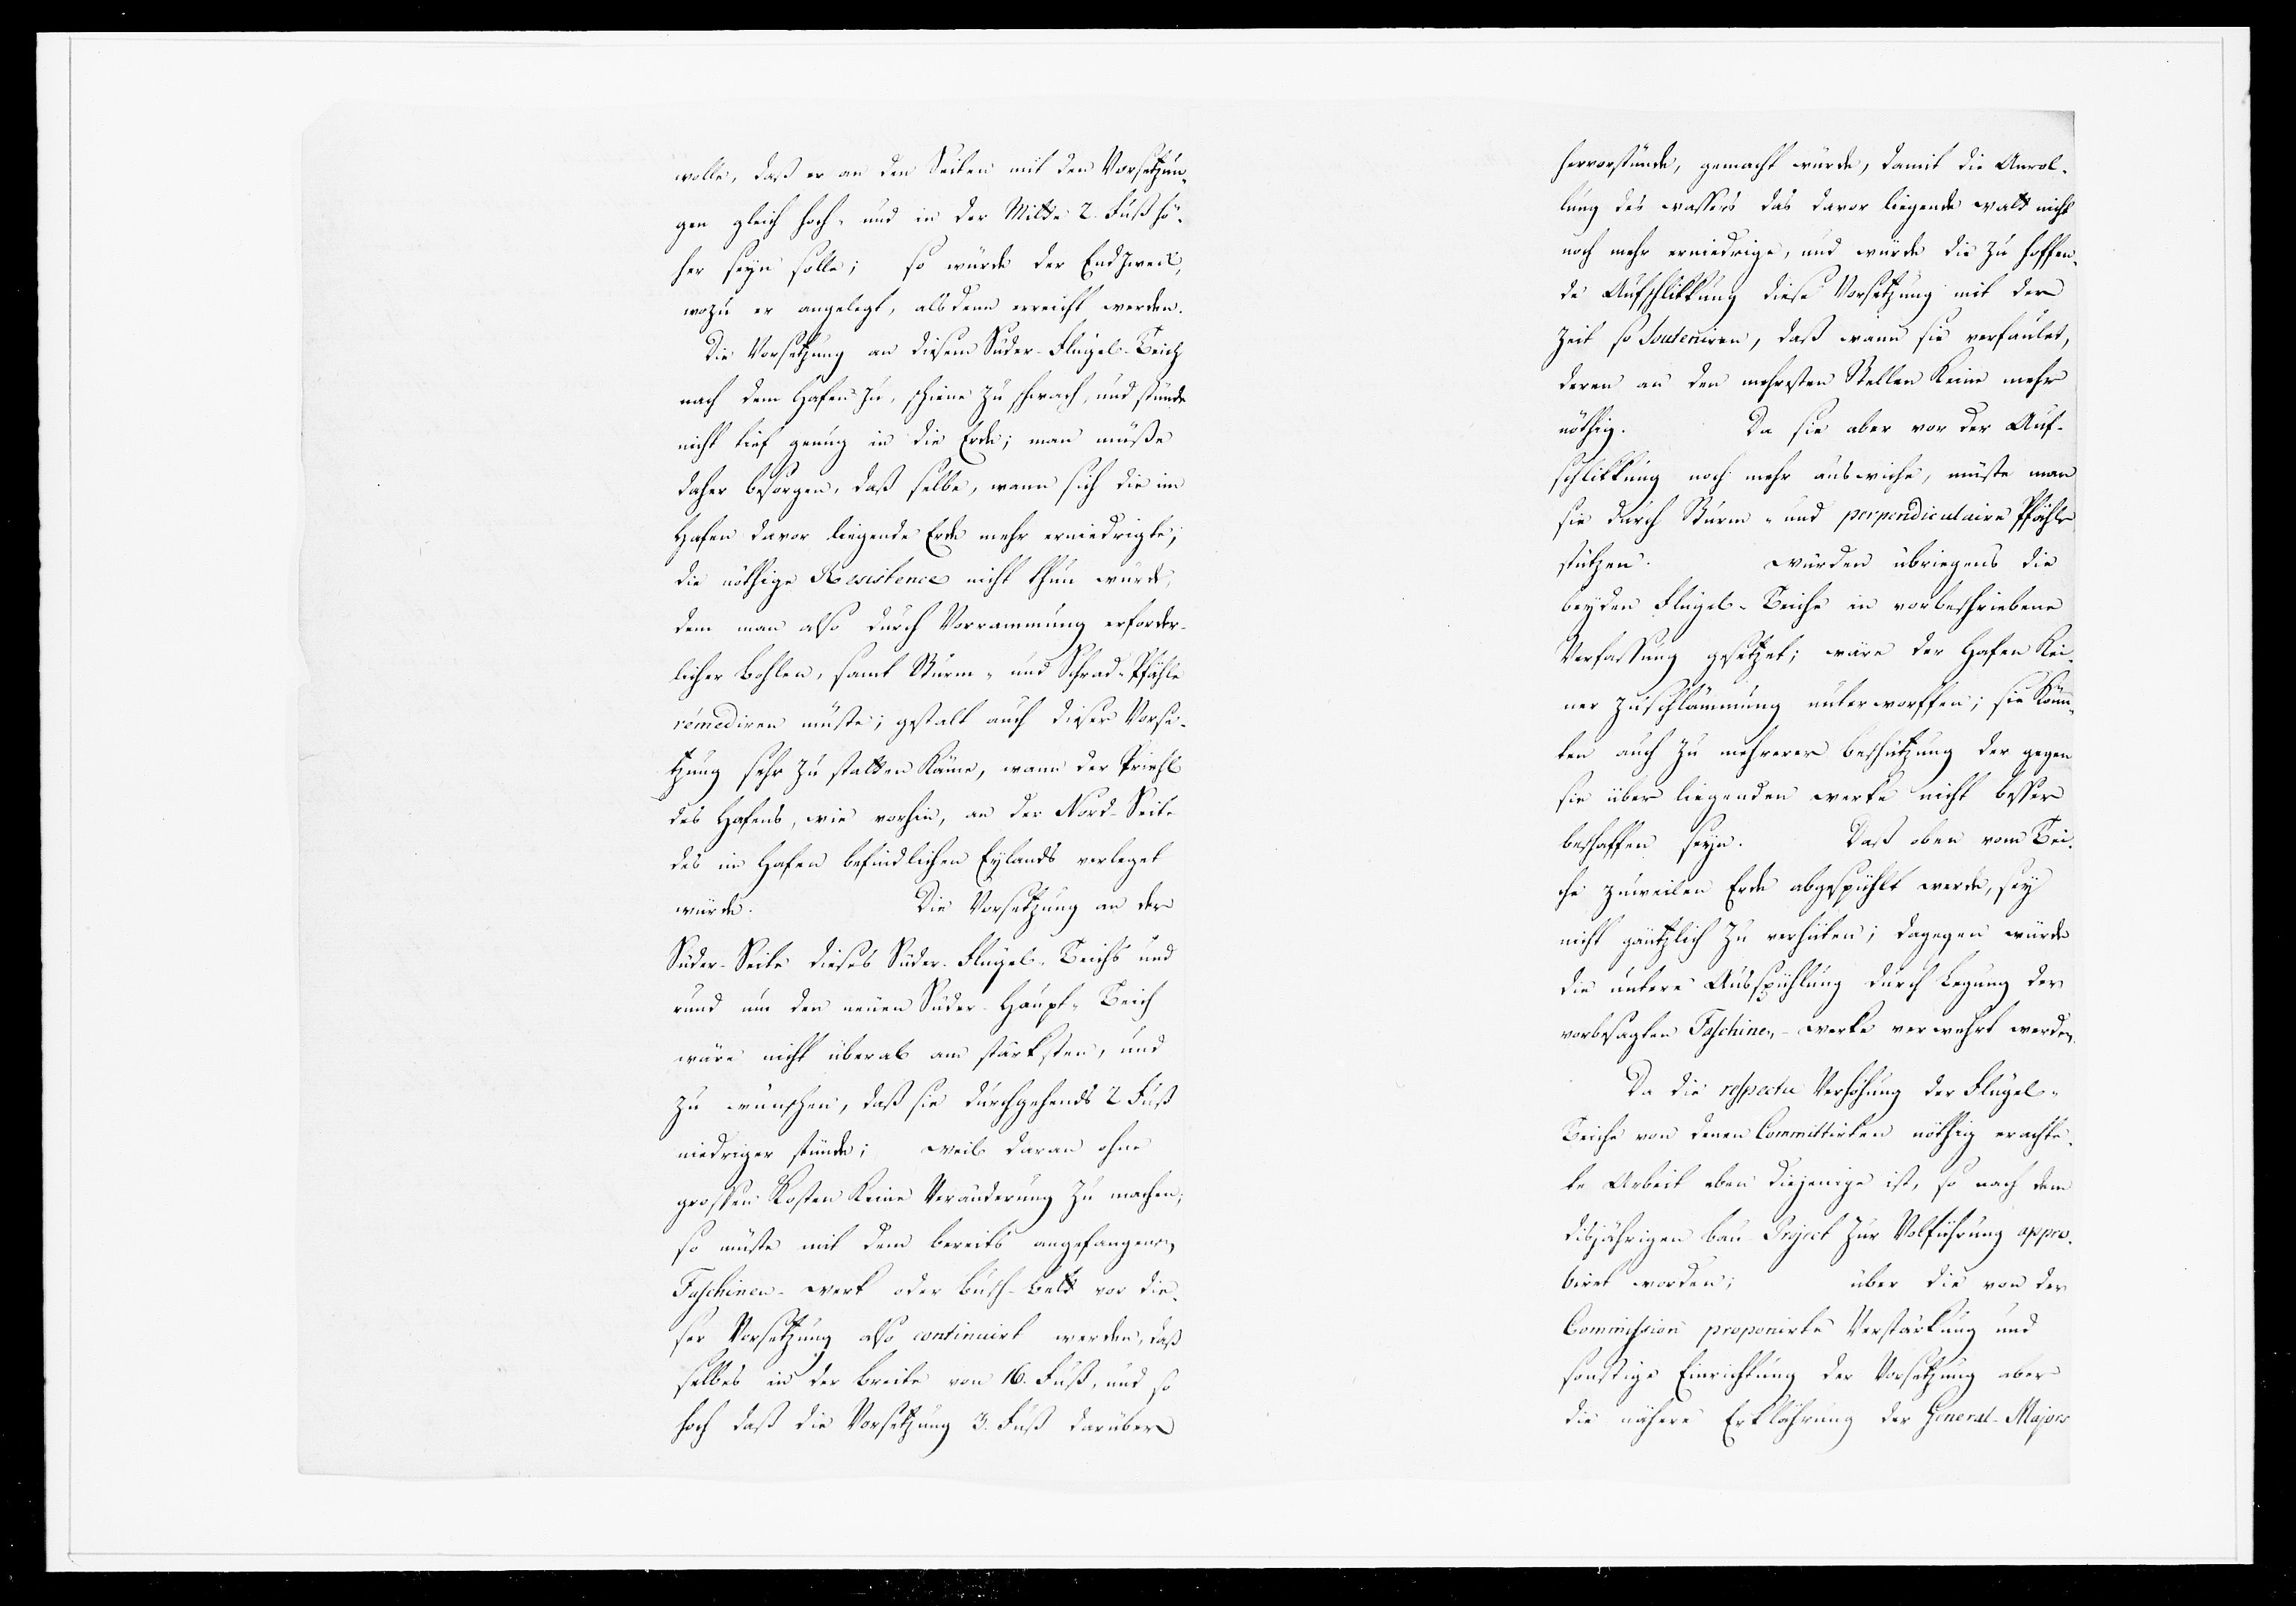 wolle, daß er an den Seiten mit den Vorsetzun-
gen gleich hoch- und in der Mitte 2. Fuß hö-
her seyn solle; so würde der Endzweck,
wozu er angelegt, alsdenn erreicht werden.
Die Vorsetzung an diesem Süder-Flügel-Teich
nach dem Hafen zu, schiene zu schwach, und stünde
nicht tief genug in die Erde; man müße
daher besorgen, daß selbe, wann sich die im
Hafen davor liegende Erde mehr erniedrigte,
die nöthige Resistence nicht thun würde,
dem man also durch Vorrammung erforder-
licher Bohlen, samt Sturm- und Schrad-Pfähle
rémediren müste; gestalt auch dieser Vorse-
tzung sehr zu statten käme, wann der Priehl
des Hafens, wie vorhin, an der Nord-Seite
des im Hafen befindlichen Eylands verleget
würde. Die Vorsetzung an der
Süder-Seite dieses Süder-Flügel-Teichs und
rund um den neuen Süder-Haupt-Teich
wäre nicht überal am stärksten, und
zu wünschen, daß sie durchgehends 2 Fuß
niedriger stünde; weil daran ohne
grossen Kosten keine Veränderung zu machen,
so müste mit dem bereits angefangenen
Faschinen-werk oder Busch-bett vor die-
ser Vorsetzung also continuirt werden, daß
selbes in der Breite von 16. Fuß, und so
hoch daß die Vorsetzung 3. Fuß darüber
hervorstünde, gemacht würde, damit die Anrol-
lung des wassers das davor liegende watt nicht
noch mehr erniedrige, und würde die zu hoffen-
de Aufschlikkung diese Vorsetzung mit der
Zeit so souteniren, daß wann sie verfaulet,
deren an den mehresten Stellen keine mehr
nöthig. Da sie aber vor der Auf-
schlikkung noch mehr auswiche, müste man
sie durch Sturm- und perpendiculaire Pfähle
stützen. würden übriegens die
beyden Flügel-Teiche in vorbeschriebene
Verfassung gesetzet; wäre der Hafen kei-
ner Zuschlämmung unterworffen; sie kön-
ten auch zu mehrerer beschützung der gegen
sie über liegenden werke nicht besser
beschaffen seyn. Daß oben vom Tei-
che zuweilen Erde abgespühlt werde, sey
nicht gäntzlich zu verhüten; dagegen würde
die untere Ausspühlung durch Legung der
vorbesagten Faschinen-werke verwehrt werden.
Da die respectu Verhöhung der Flügel-
Teiche von denen Committirten nöthig erachte-
te Arbeit eben diejenige ist, so nach dem
disjährigen bau-Project zur Volführung appro-
birt worden; über die von der
Commission proponirte Verstärkung und
sonstige Einrichtung der Vorsetzung aber
die nähere Erklährung der General-Majors